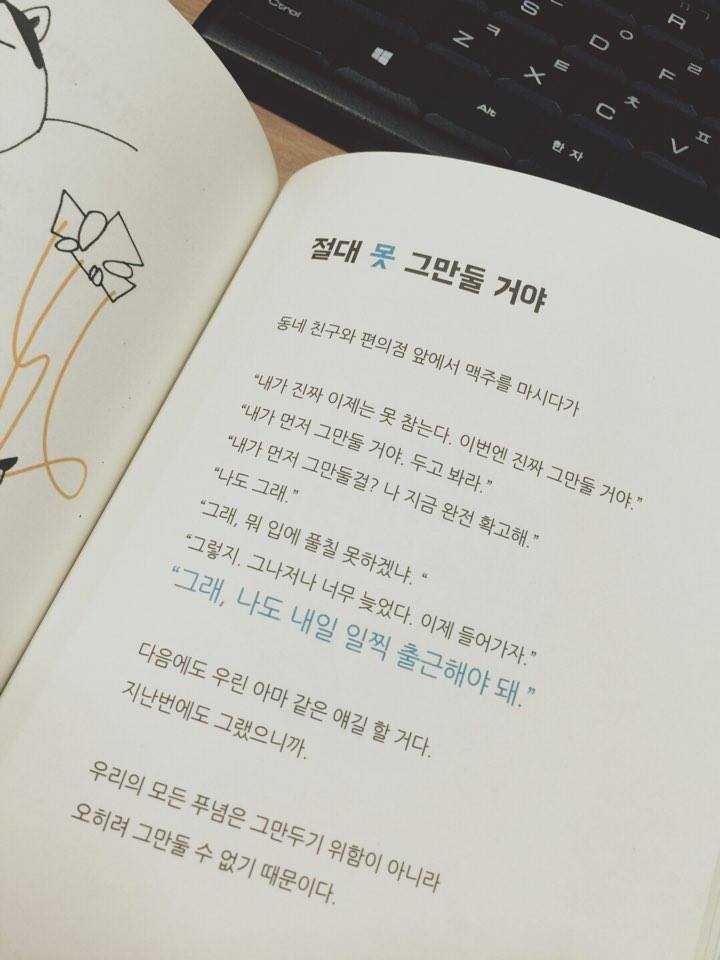 Ctrl
S
R
ㄱ
Z ㅋ
D ㅇ
F ㄹ
X ㅌ
Alt
C ㅊ
V ㅍ
한자
절대 못 그만둘 거야
동네 친구와 편의점 앞에서 맥주를 마시다가
“내가 진짜 이제는 못 참는다. 이번엔 진짜 그만둘 거야.”
“내가 먼저 그만둘 거야. 두고 봐라.”
“내가 먼저 그만둘걸? 나 지금 완전 확고해.”
“나도 그래.”
“그래, 뭐 입에 풀칠 못하겠냐. “
“그렇지. 그나저나 너무 늦었다. 이제 들어가자.”
“그래, 나도 내일 일찍 출근해야 돼.”
다음에도 우린 아마 같은 얘길 할 거다.
지난번에도 그랬으니까.
우리의 모든 푸념은 그만두기 위함이 아니라
오히려 그만둘 수 없기 때문이다.